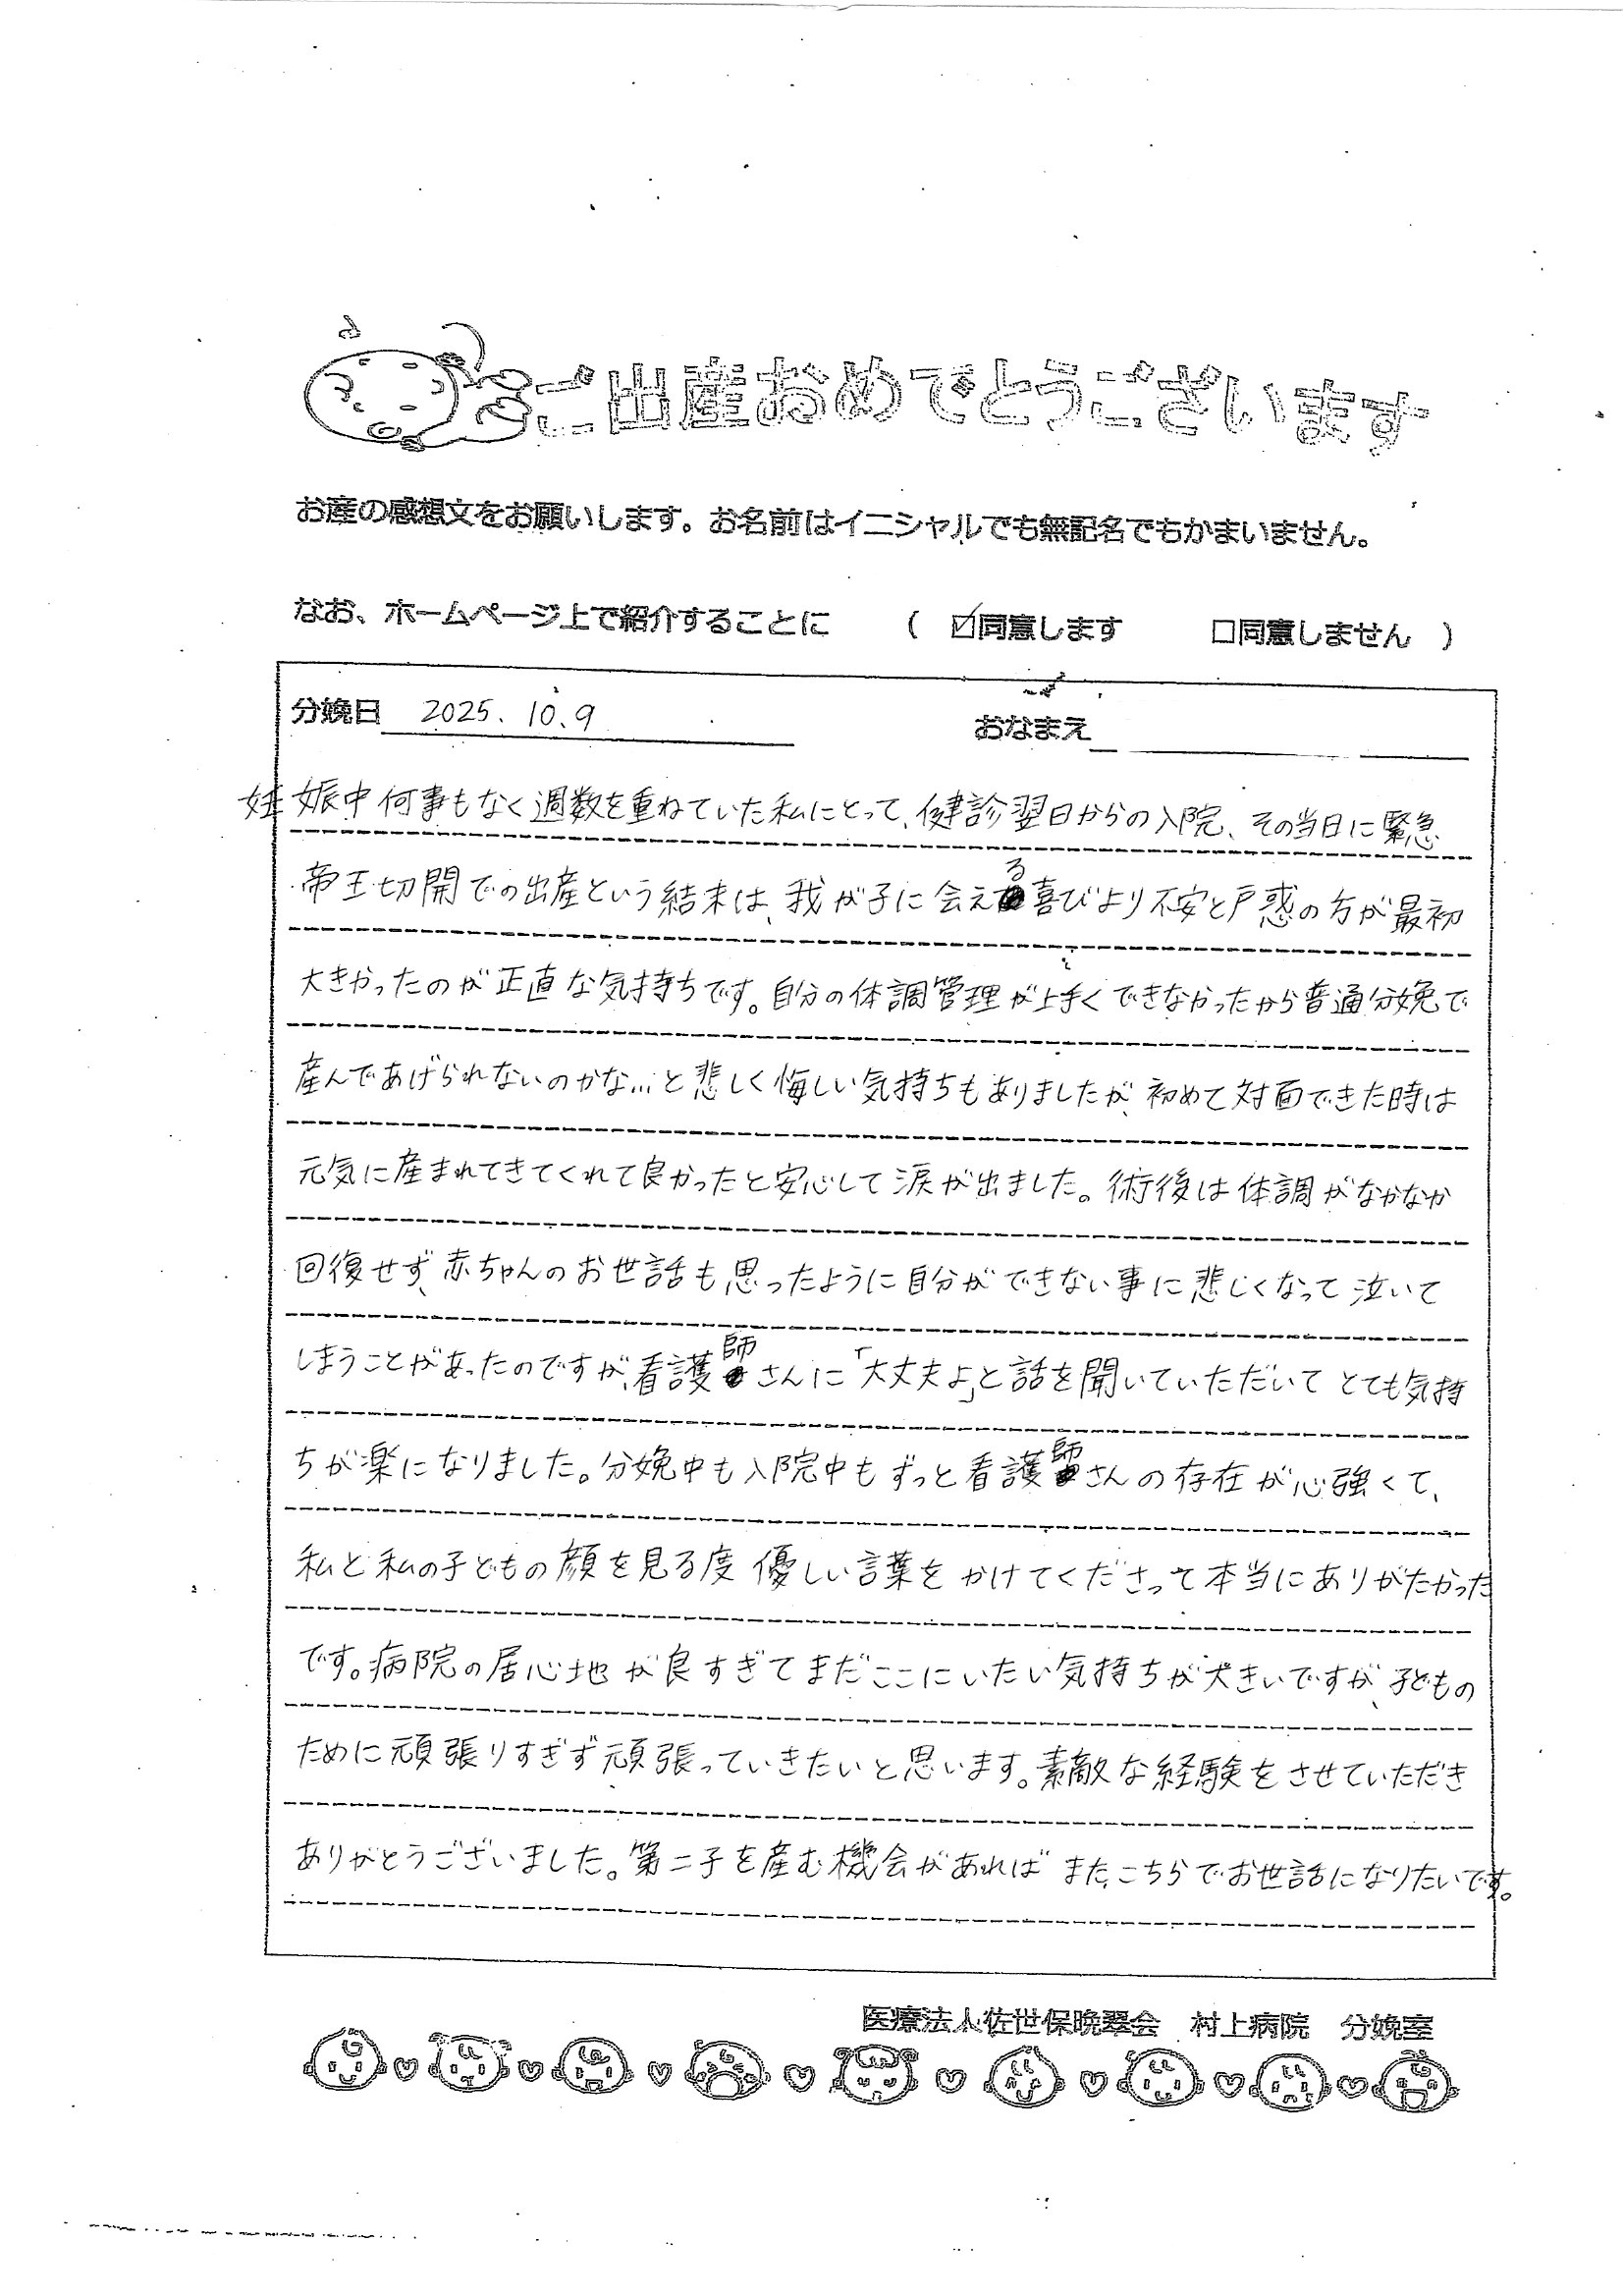 ご出産おめでとうございます
お産の感想文をお願いします。お名前はイニシャルでも無記名でもかまいません。
なお、ホームページ上で紹介することに ( ☑同意します □同意しません )
分娩日 2025.10.9 おなまえ
妊娠中何事もなく週数を重ねていた私にとって、健診翌日からの入院、その当日に緊急
帝王切開での出産という結末は、我が子に会える喜びより不安と戸惑の方が最初
大きかったのが正直な気持ちです。自分の体調管理が上手くできなかったから普通分娩で
産んであげられないのかな…と悲しく悔しい気持ちもありましたが、初めて対面できた時は
元気に産まれてきてくれて良かったと安心して涙が出ました。術後は体調がなかなか
回復せず、赤ちゃんのお世話も思ったように自分ができない事に悲しくなって泣いて
しまうことがあったのですが、看護師さんに「大丈夫よ」と話を聞いていただいてとても気持
ちが楽になりました。分娩中も入院中もずっと看護師さんの存在が心強くて、
私と私の子どもの顔を見る度優しい言葉をかけてくださって本当にありがたかった
です。病院の居心地が良すぎてまだここにいたい気持ちが大きいですが、子どもの
ために頑張りすぎず頑張っていきたいと思います。素敵な経験をさせていただき
ありがとうございました。第二子を産む機会があればまた、こちらでお世話になりたいです。
医療法人佐世保晩翠会 村上病院 分娩室